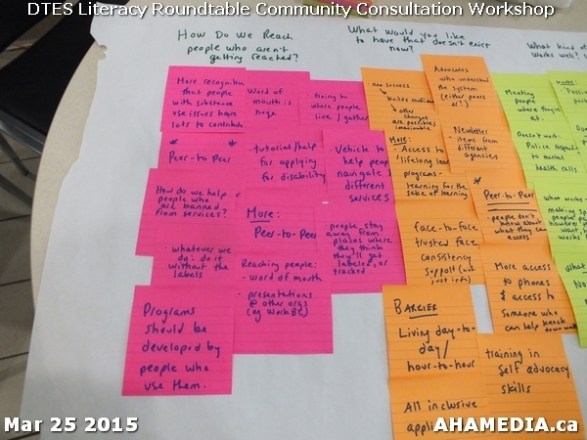 DTES Literacy Roundtable Community Consultation Workshop
How Do We Reach
people who aren't
getting reached?
What would you like
to have that doesn't exist
now?
What kind
works well?
More recognition
that people
with substance
use issues have
lots to contribute
Word of
mouth is
huge
going to
where people
live / gather
* *
Peer-to-Peer
- tutorial/help
for applying
for disability
- Vehicle to
help people
navigate
different
services
How do we help
people who
are banned
from services?
More:
Peer-to-Peer
people stay
away from
places where
they think
they'll get
labeled, or
tracked
whatever we
do: do it
without the
labels
Reaching people:
- word of mouth
- presentations
@ other orgs
(eg WorkBC)
Programs
should be
developed by
people who
use them.
success
builds
other
changes
are possible/
imaginable
Advocates
who understand
the system
(either peers
or!)
More:
- Access to
lifelong
programs -
learning for the
sake of learning
Newsletter
- items from
different
agencies
face-to-face
trusted face
consistency
support
* Peer-to-Peer
- people don't
know about
what they can
access
More access
to phones
& access to
someone who
can help
down
BARRIERS
Living day-to-
day/
hour-to-hour
training in
self advocacy
skills
All inclusive
Meeting
people
where they're
at.
Doesn't work:
Police
to mental
health calls
what works -
making
people
Mar 25 2015
AHAMEDIA.ca